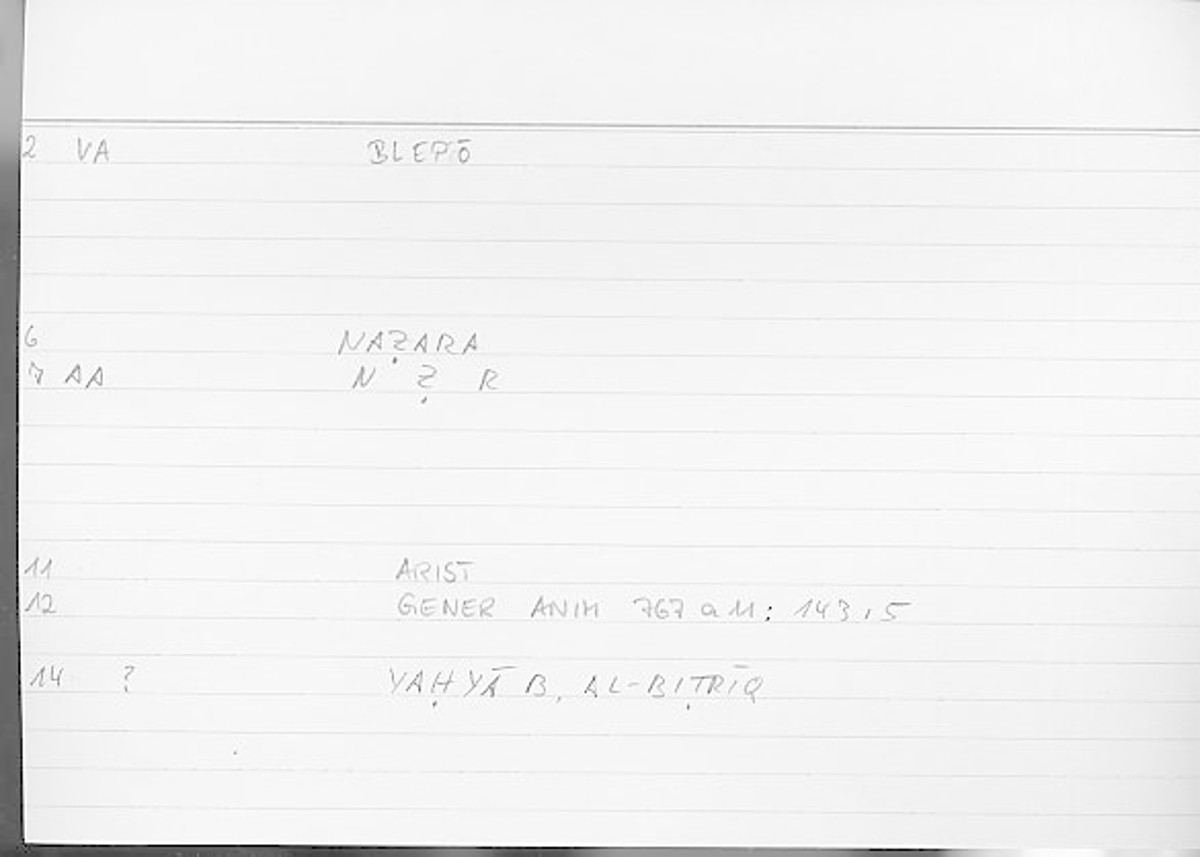 2 VA BLEPŌ
6 NAẒARA
7 AA N Ẓ R
11 ARIST
12 GENER ANIM 767 a 11: 143,5
14 ? YAḤYĀ B. AL-BIṬRĪQ